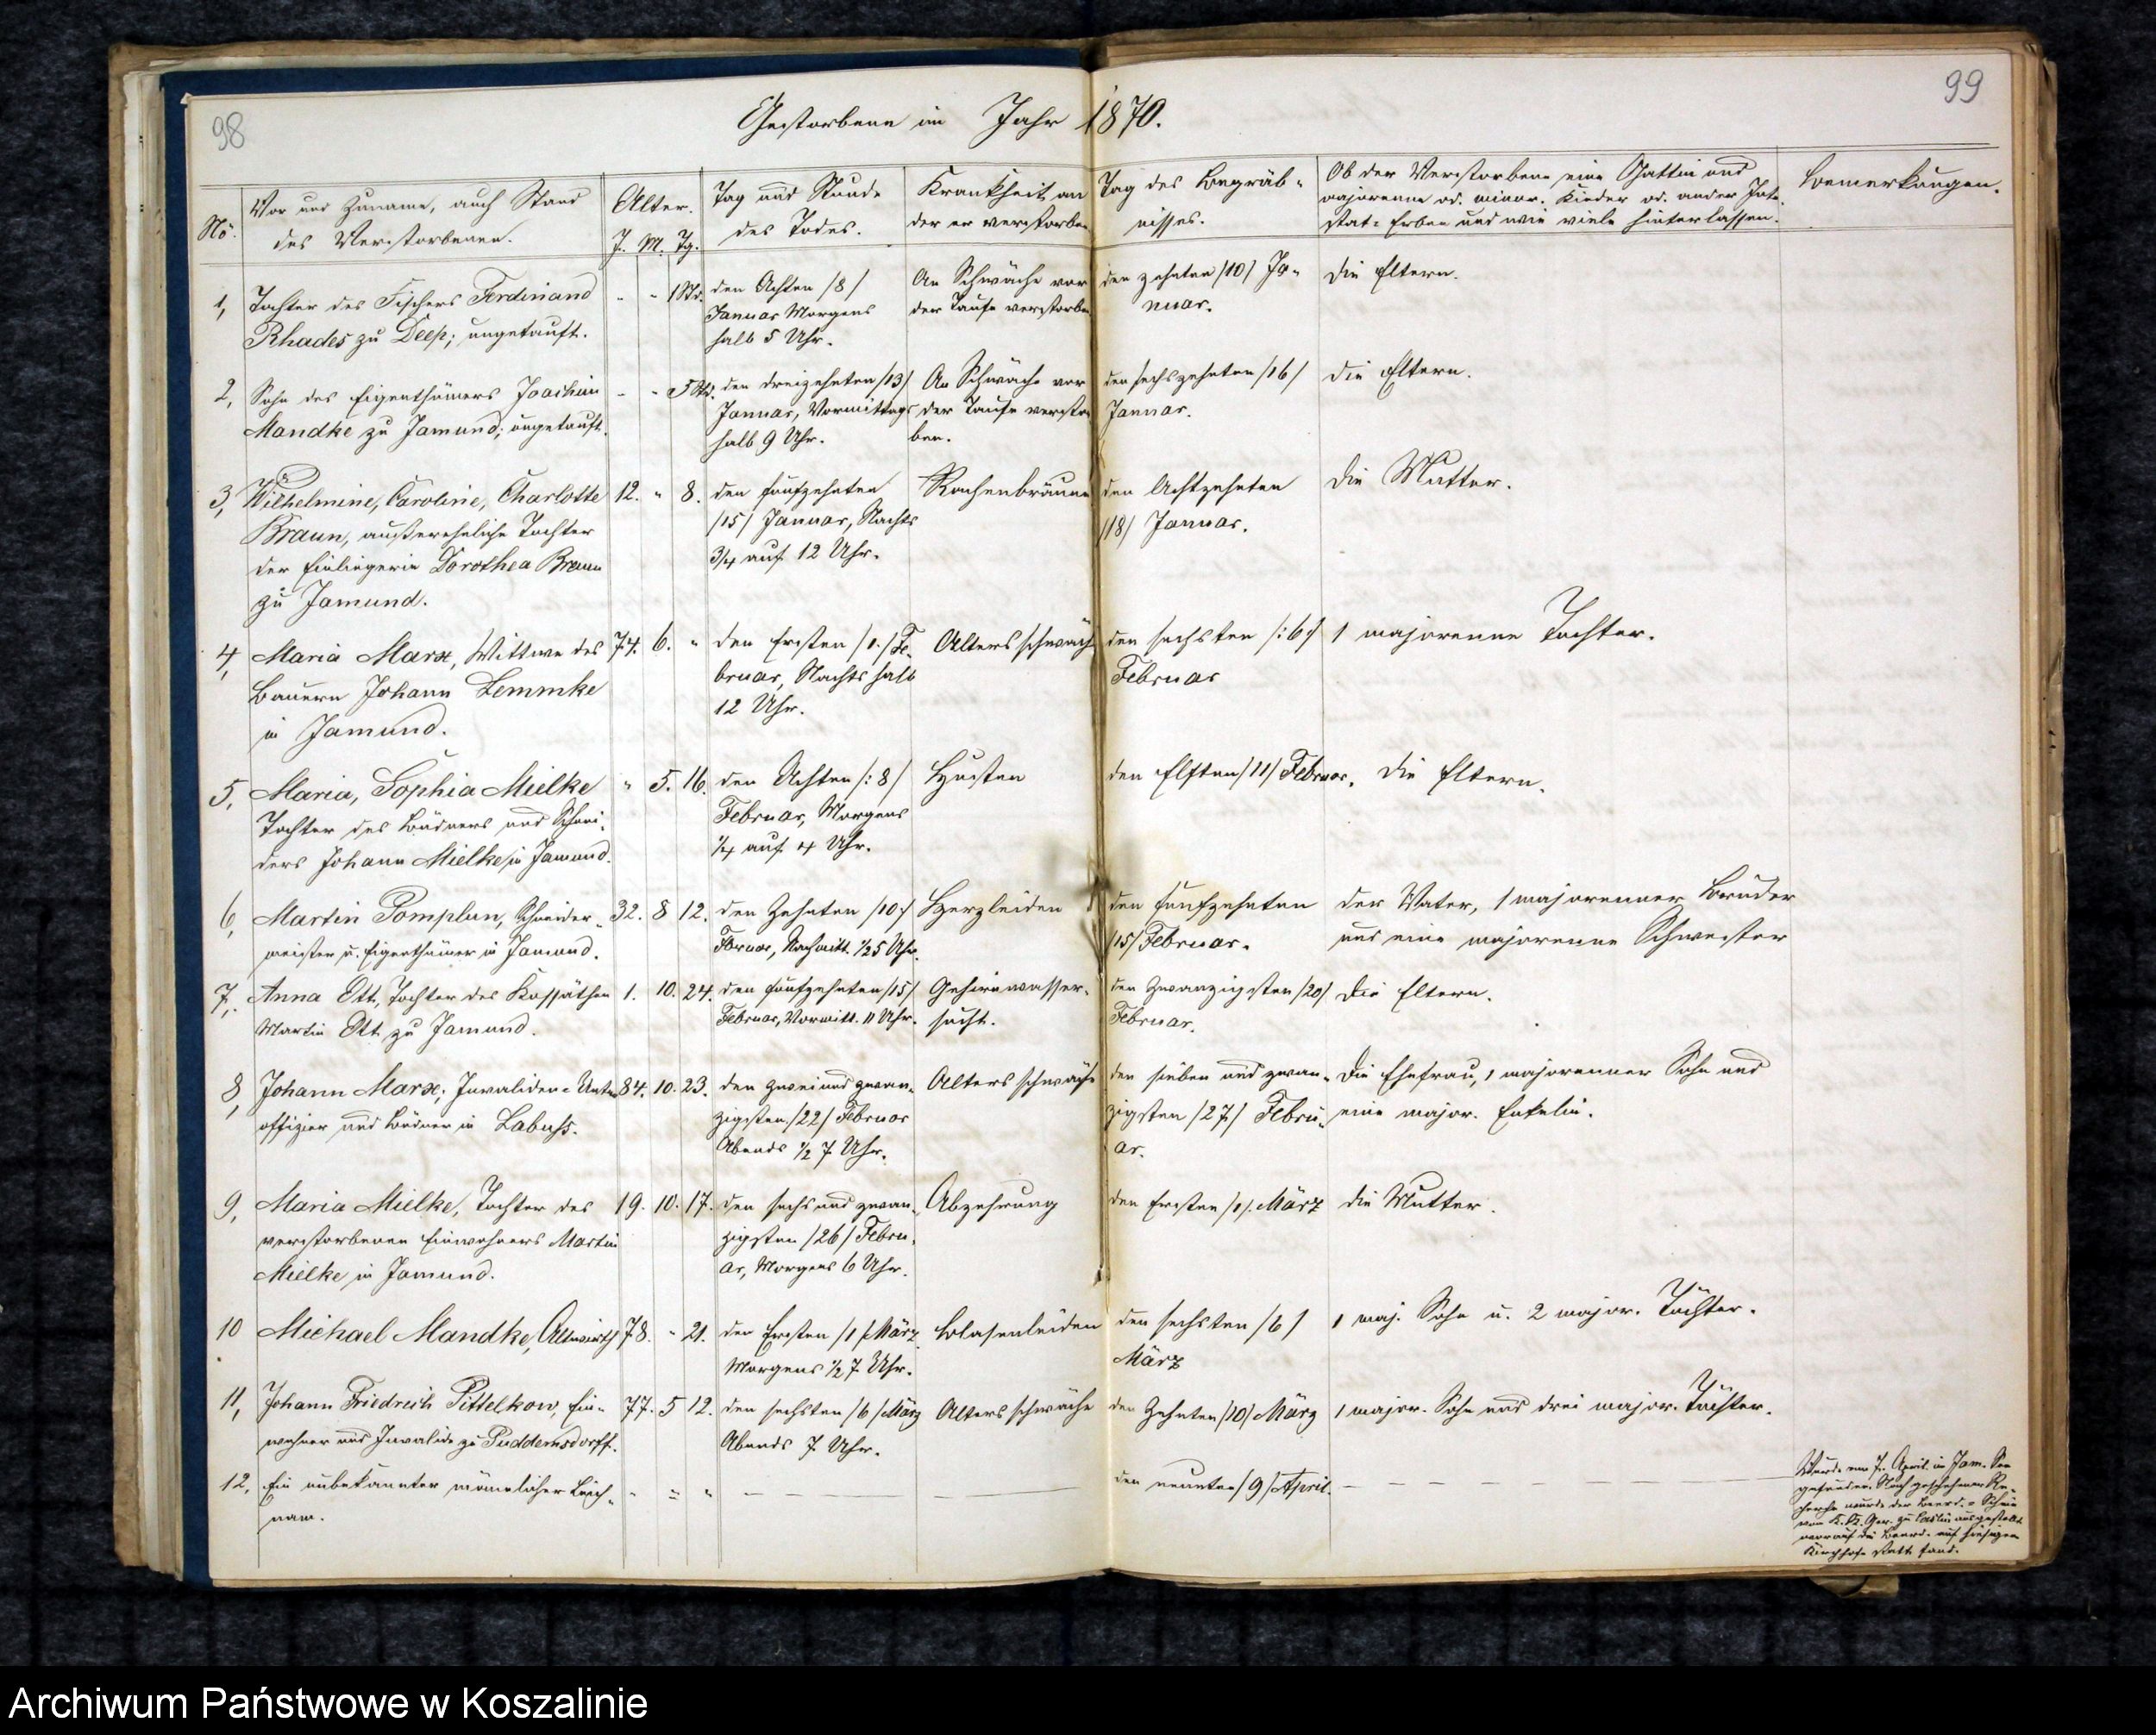 98
99
Gestorbene im Jahr 1870.
No.
Vor und Zuname, auch Stand
des Verstorbenen.
Alter.
J. M. Tg.
Tag und Stunde
des Todes.
Krankheit an
der er verstorben
Tag des Begräb-
nisses.
Ob der Verstorbene eine Gattin und
majorenne od. minor. Kinder od. ander Inte-
stat-Erben und wie viele hinterlassen.
Bemerkungen.
1, Tochter des Fischers Ferdinand
Rhades zu Deep; ungetauft.
" " 1 Std.
den Achten /8/
Januar Morgens
halb 5 Uhr.
An Schwäche vor
der Taufe verstorben
den zehnten /10/ Ja-
nuar.
Die Eltern.
2, Sohn des Eigenthümers Joachim
Mandke zu Jamund; ungetauft.
" " 5 Std.
den dreizehnten /13/
Januar, Vormittags
halb 9 Uhr.
An Schwäche vor
der Taufe verstor-
ben.
den sechszehnten /16/
Januar.
die Eltern.
3, Wilhelmine, Caroline, Charlotte
Braun, außereheliche Tochter
der Einliegerin Dorothea Braun
zu Jamund.
12. " 8.
den funfzehnten
/15/ Januar, Nachts
3/4 auf 12 Uhr.
Rachenbräune
den Achtzehnten
/18/ Januar.
die Mutter.
4, Maria Marx, Wittwe des
Bauern Johann Lemmke
in Jamund.
74. 6. "
den Ersten /1./ Fe-
bruar, Nachts halb
12 Uhr.
Altersschwäche
den sechsten /:6:/
Februar
1 majorenne Tochter.
5, Maria, Sophia Mielke
Tochter des Büdners und Schnei-
ders Johann Mielke in Jamund.
" 5. 16.
den Achten /:8/
Februar, Morgens
1/4 auf 4 Uhr.
Husten
den Elften /11/ Februar.
die Eltern.
6, Martin Pomplun, Schneider-
meister u. Eigenthümer in Jamund.
32. 8 12.
den Zehnten /10:/
Februar, Nachmitt. 1/2 5 Uhr.
Herzleiden
den funfzehnten
/15/ Februar.
der Vater, 1 majorenner Bruder
und eine majorenne Schwester
7, Anna Ott, Tochter des Kossäthen
Martin Ott zu Jamund.
1. 10. 24.
den funfzehnten /15/
Februar, Vormitt. 11 Uhr.
Gehirnwasser-
sucht.
den Zwanzigsten /20/
Februar.
Die Eltern.
8, Johann Marx; Invaliden-Unter
offizier und Büdner in Labuhs.
84. 10. 23.
den zwei und zwan-
zigsten /22/ Februar
Abends 1/2 7 Uhr.
Altersschwäche
den sieben und zwan-
zigsten /27/ Febru-
ar.
die Ehefrau, 1 majorenner Sohn und
eine major. Enkelin.
9, Maria Mielke, Tochter des
verstorbenen Einwohners Martin
Mielke in Jamund.
19. 10. 17.
den sechs und zwan-
zigsten /26/ Febru-
ar, Morgens 6 Uhr.
Abzehrung
den Ersten /1/. März
die Mutter.
10 Michael Mandke, Altwirth
78. " 21.
den Ersten /1/ März
Morgens 1/2 7 Uhr.
Blasenleiden
den sechsten /6/
März
1 maj. Sohn u. 2 major. Töchter.
11, Johann Friedrich Pittelkow, Ein-
wohner und Invalide zu Puddemsdorff.
77. 5 12.
den sechsten /6/ März
Abends 7 Uhr.
Altersschwäche
den Zehnten /10/ März
1 major. Sohn und drei major. Töchter.
12, Ein unbekannter männlicher Leich-
nam.
" " "
den neunten /9/ April.
Wurde am 7. April im Jam. See
gefunden. Nach geschehener Re-
cherche wurde der Beerd.-Schein
vom K. Kr. Ger. zu Cöslin ausgestellt
worauf die Beerd. auf hiesigem
Kirchhofe statt fand.
Archiwum Państwowe w Koszalinie